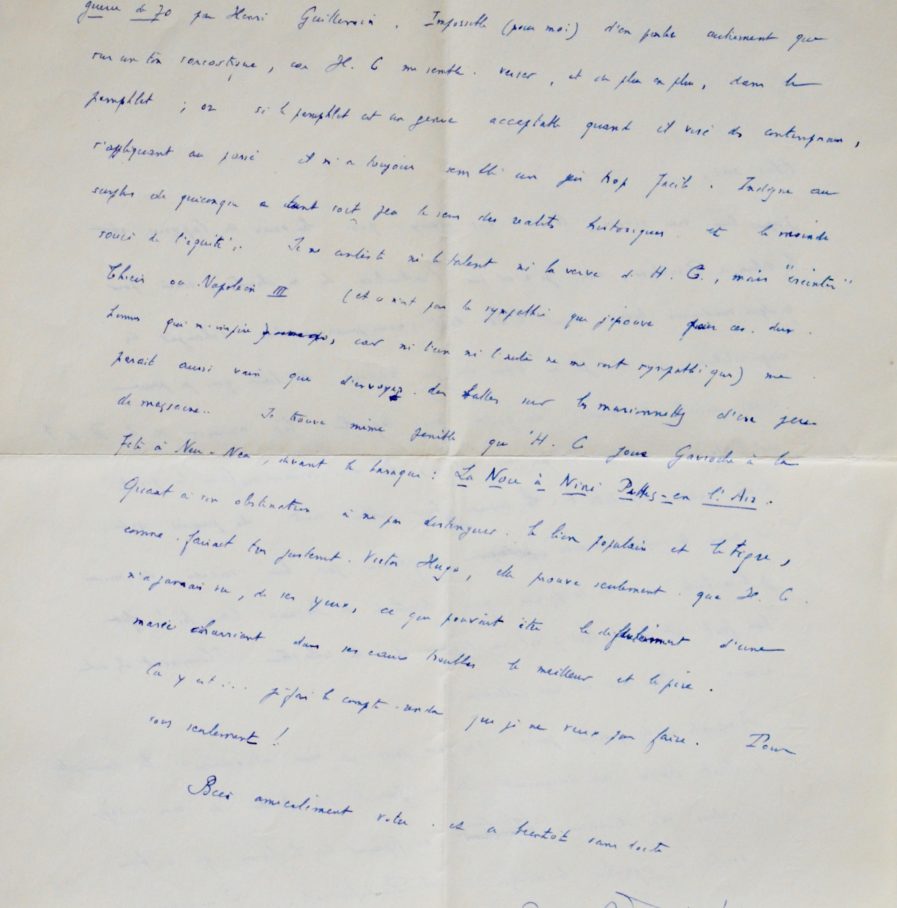 guerre de 70 par Henri Guillemin. Impossible (pour moi) d'en parler autrement que
sur un ton sarcastique, car H. G me semble verser, et de plus en plus, dans le
pamphlet ; or si le pamphlet est un genre acceptable quand il vise des contemporains,
s'appliquant au passé il m'a toujours semblé un peu trop facile. Indigne au
surplus de quiconque a tant soit peu le sens des réalités historiques et le moindre
souci de l'équité. Je ne conteste ni le talent ni la verve d'H. G., mais "éreinter"
Thiers ou Napoléon III (et ce n'est pas la sympathie que j'éprouve pour ces deux
hommes qui m'inspire, car ni l'un ni l'autre ne me sont sympathiques) me
paraît aussi vain que d'envoyer des balles sur les marionnettes d'un jeu
de massacre. Je trouve même pénible que H. G joue Gavroche à la
fête à Neu-Neu, devant la baraque : La Noce à Nini Pattes-en l'Air.
Quant à son obstination à ne pas distinguer le lion populaire et le tigre,
comme faisait très justement Victor Hugo, elle prouve seulement que H. G.
n'a jamais vu, de ses yeux, ce que pouvait être le déferlement d'une
marée charriant dans ses eaux troubles le meilleur et le pire.
Ca y est... j'ai fait le compte-rendu que je ne veux pas faire. Pour
vous seulement !
Bien amicalement votre. et à bientôt sans doute